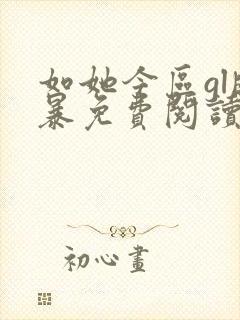 如她今区gl
暴免費閱讀
初心畫